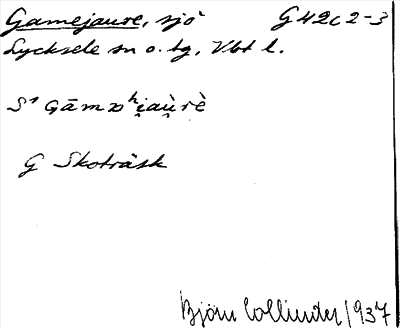 Gamejaure, sjö G42c2-3
Lycksele sn o. tg, Vbt l.
G Skoträsk
Björn Collinder 1937